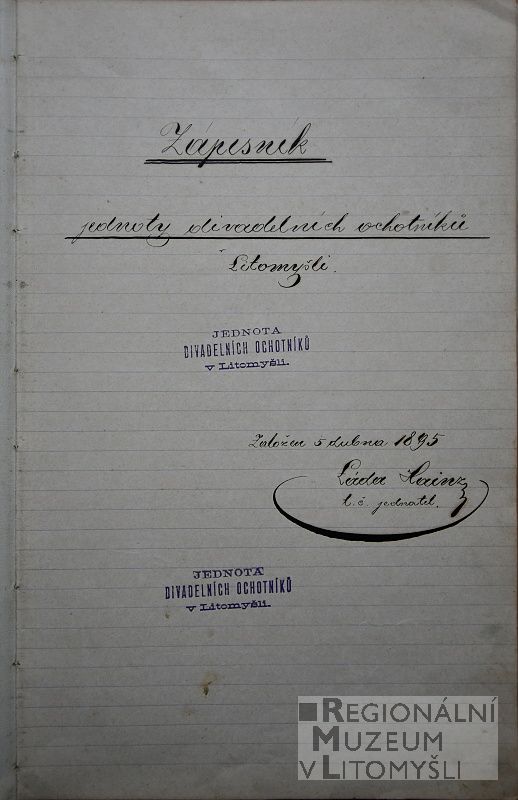 Zápisník
jednoty divadelních ochotníků
v Litomyšli.
JEDNOTA
DIVADELNÍCH OCHOTNÍKŮ
v Litomyšli.
Založen 5 dubna 1895
Láda Hainz
t. č. jednatel.
JEDNOTA
DIVADELNÍCH OCHOTNÍKŮ
v Litomyšli.
REGIONÁLNÍ
MUZEUM
V LITOMYŠLI